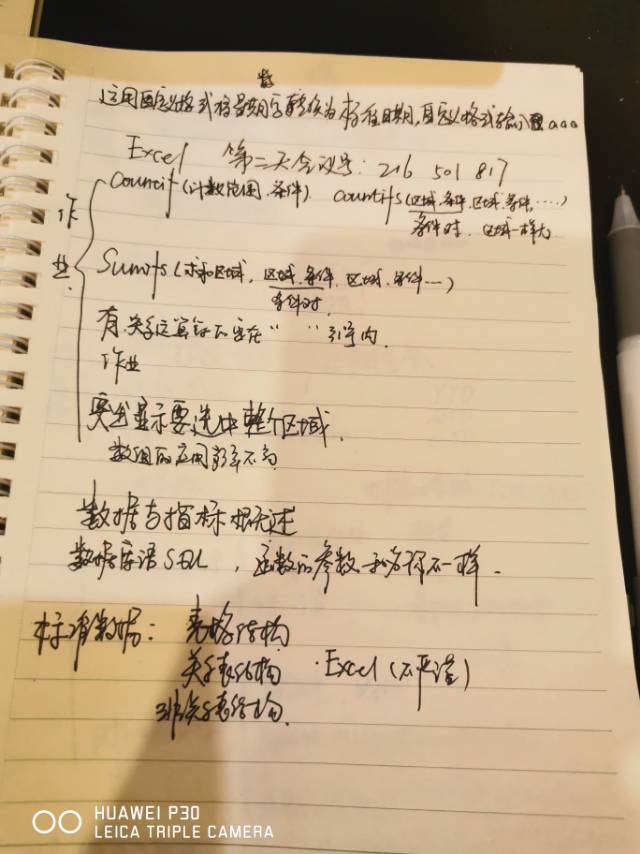 运用自定义格式将星期字转换为标准日期,自定义格式输入 aaa
Excel 第二天会议号: 216 501 817
作业
Countif(计数范围.条件) Countifs(区域.条件.区域.条件.....)
条件对. 区域一样大
Sumifs(求和区域, 区域.条件.区域.条件...)
条件对.
有关系运算符 要在“ ”引号内.
作业
突出显示要选中整个区域.
数组的应用 不高
数据与指标概述
数据库语 SQL, 函数的参数和名称不一样.
标准数据: 表格结构
关系表结构 · Excel (不严谨)
非关系表结构.
HUAWEI P30
LEICA TRIPLE CAMERA